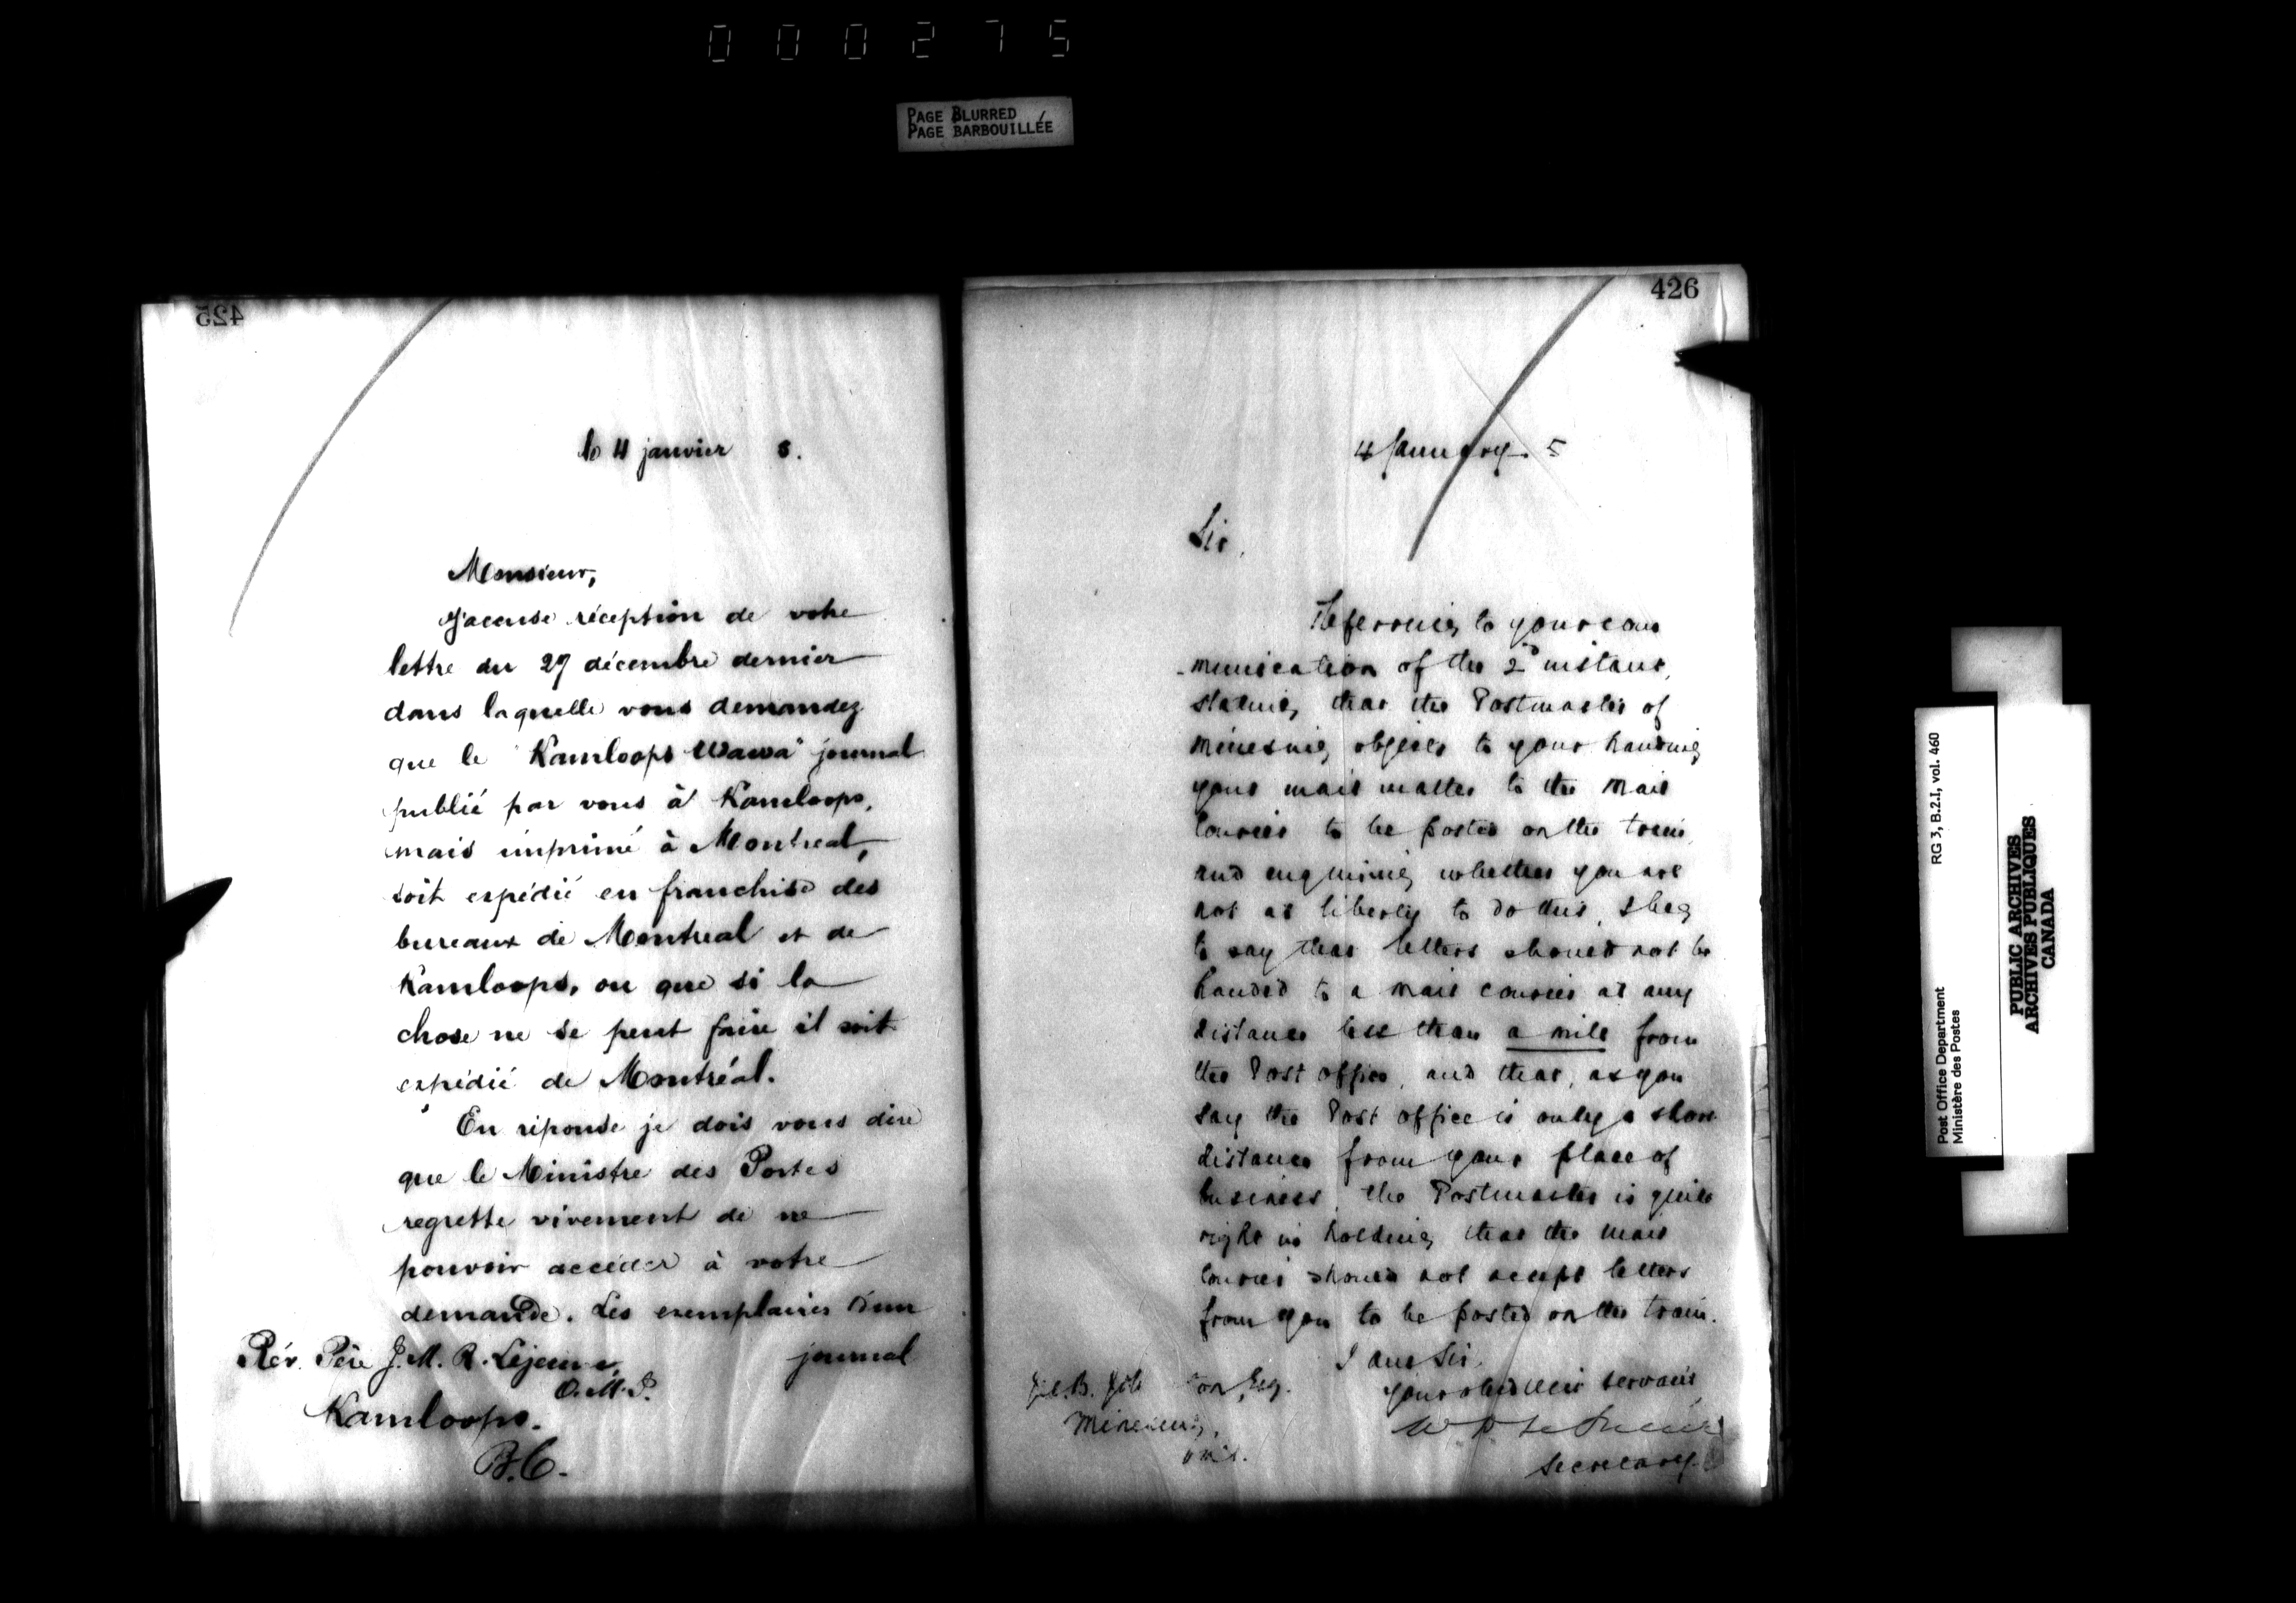 000275
PAGE BLURRED
PAGE BARBOUILLÉE
425
le 4 janvier 5.
Monsieur,
J'accuse réception de votre
lettre du 27 décembre dernier
dans laquelle vous demandez
que le "Kamloops Wawa" journal
publié par vous à Kamloops,
mais imprimé à Montreal,
soit expédié en franchise des
bureaux de Montreal et de
Kamloops, ou que si la
chose ne se peut faire il soit
expédié de Montréal.
En réponse je dois vous dire
que le Ministre des Postes
regrette vivement de ne
pouvoir accéder à votre
demande. Les exemplaires d'un
journal
Rév. Père J. M. R. Lejeune,
O. M. I.
Kamloops.
B.C.
426
4 January 5
Sir,
Referring to your com
-munication of the 2d instant,
stating that the Postmaster of
objects to your handing
your mail matter to the mail
courier to be posted on the train,
and enquiring whether you are
not at liberty to do this, I beg
to say that letters should not be
handed to a mail courier at any
distance less than a mile from
the Post office, and that, as you
say the Post office is only a short
distance from your place of
business, the Postmaster is quite
right in holding that the mail
courier should not accept letters
from you to be posted on the train.
I am Sir,
Your obedient servant
Secretary
Esq.
Ont.
Post Office Department
Ministère des Postes
RG 3, B.2.I, vol. 460
PUBLIC ARCHIVES
ARCHIVES PUBLIQUES
CANADA